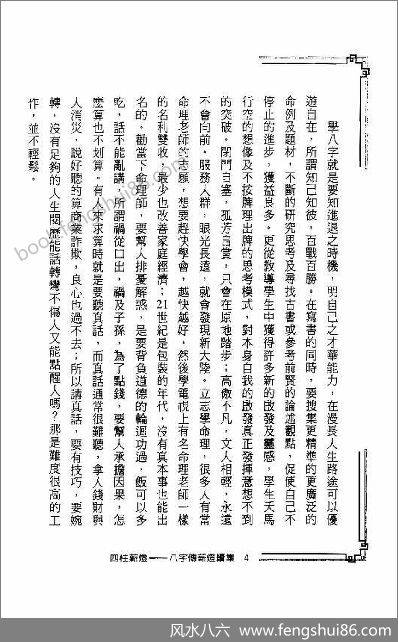 學八字就是要知進退之時機，明自己之才華能力，在漫長人生路途可以優
遊自在，所謂知己知彼，百戰百勝。在寫書的同時，要搜集更精準的更廣泛的
命例及題材，不斷的研究思考及尋找古書或參考前賢的論述觀點，促使自己不
停止的進步，獲益良多。更從教導學生中獲得許多新的啟發及靈感，學生天馬
行空的想像及不按牌理出牌的思考模式，對本身自我的啟發真正發揮意想不到
的突破。閉門自塞，孤芳自賞，只會在原地踏步；高傲不凡，文人相輕，永遠
不會向前。服務人群，眼光長遠，就會發現新大陸。立志學命理，很多人有當
命理老師的志願，想要趕快學會，越快越好，然後學電視上有名命理老師一樣
的名利雙收，最少也改善家庭經濟；21世紀是包裝的年代，沒有真本事也能出
名的，勸當下命理師，要幫人排憂解惑，是要背負道德的輪迴功過，飯可以多
吃，話不能亂講，所謂禍從口出，禍及子孫，為了點錢，要幫人承擔因果，怎
麼算也不划算。有人來求算時就是要聽真話，而真話通常很難聽，拿人錢財與
人消災，說好聽的算商業詐欺，良心也過不去；所以講真話，要有技巧，要婉
轉，沒有足夠的人生閱歷能話轉彎不傷人又能點醒人嗎？那是難度很高的工
作，並不輕鬆。
四柱新燈——八字傳薪燈續集 4
风水八六－www.fengshui86.com